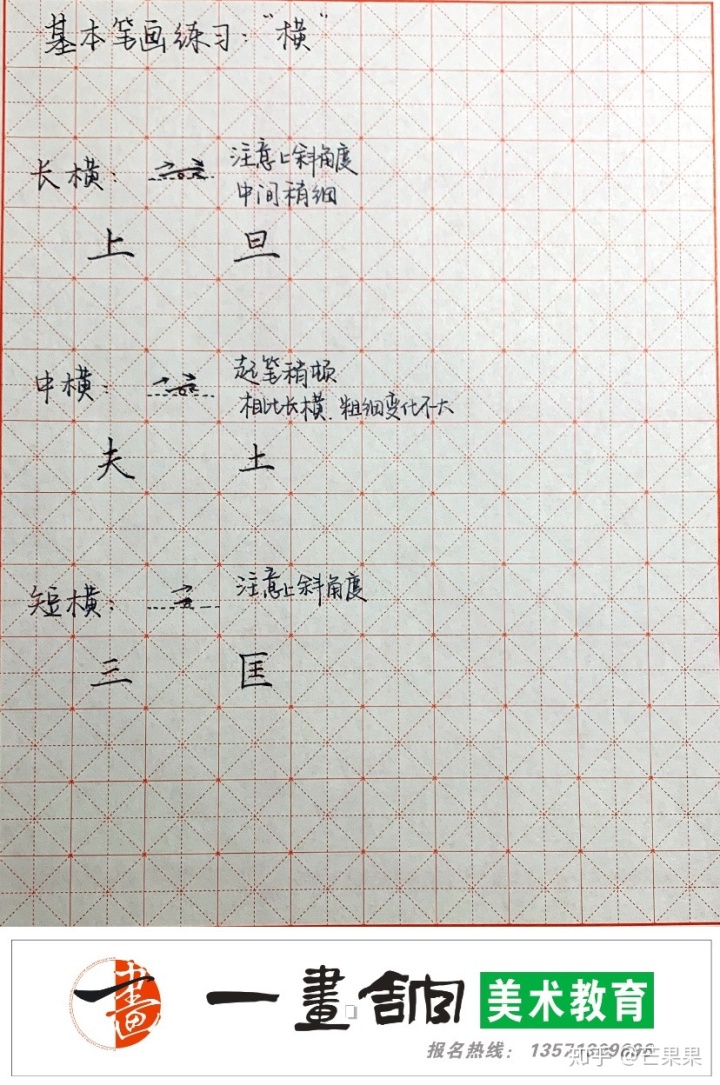 基本笔画练习："横"
长横： 注意上斜角度
中间稍细
上 旦
中横： 起笔稍顿
相比长横，粗细变化不大
夫 土
短横： 注意上斜角度
三 匡
畫
一畫舍间 美术教育
报名热线：
知乎 @芒果果